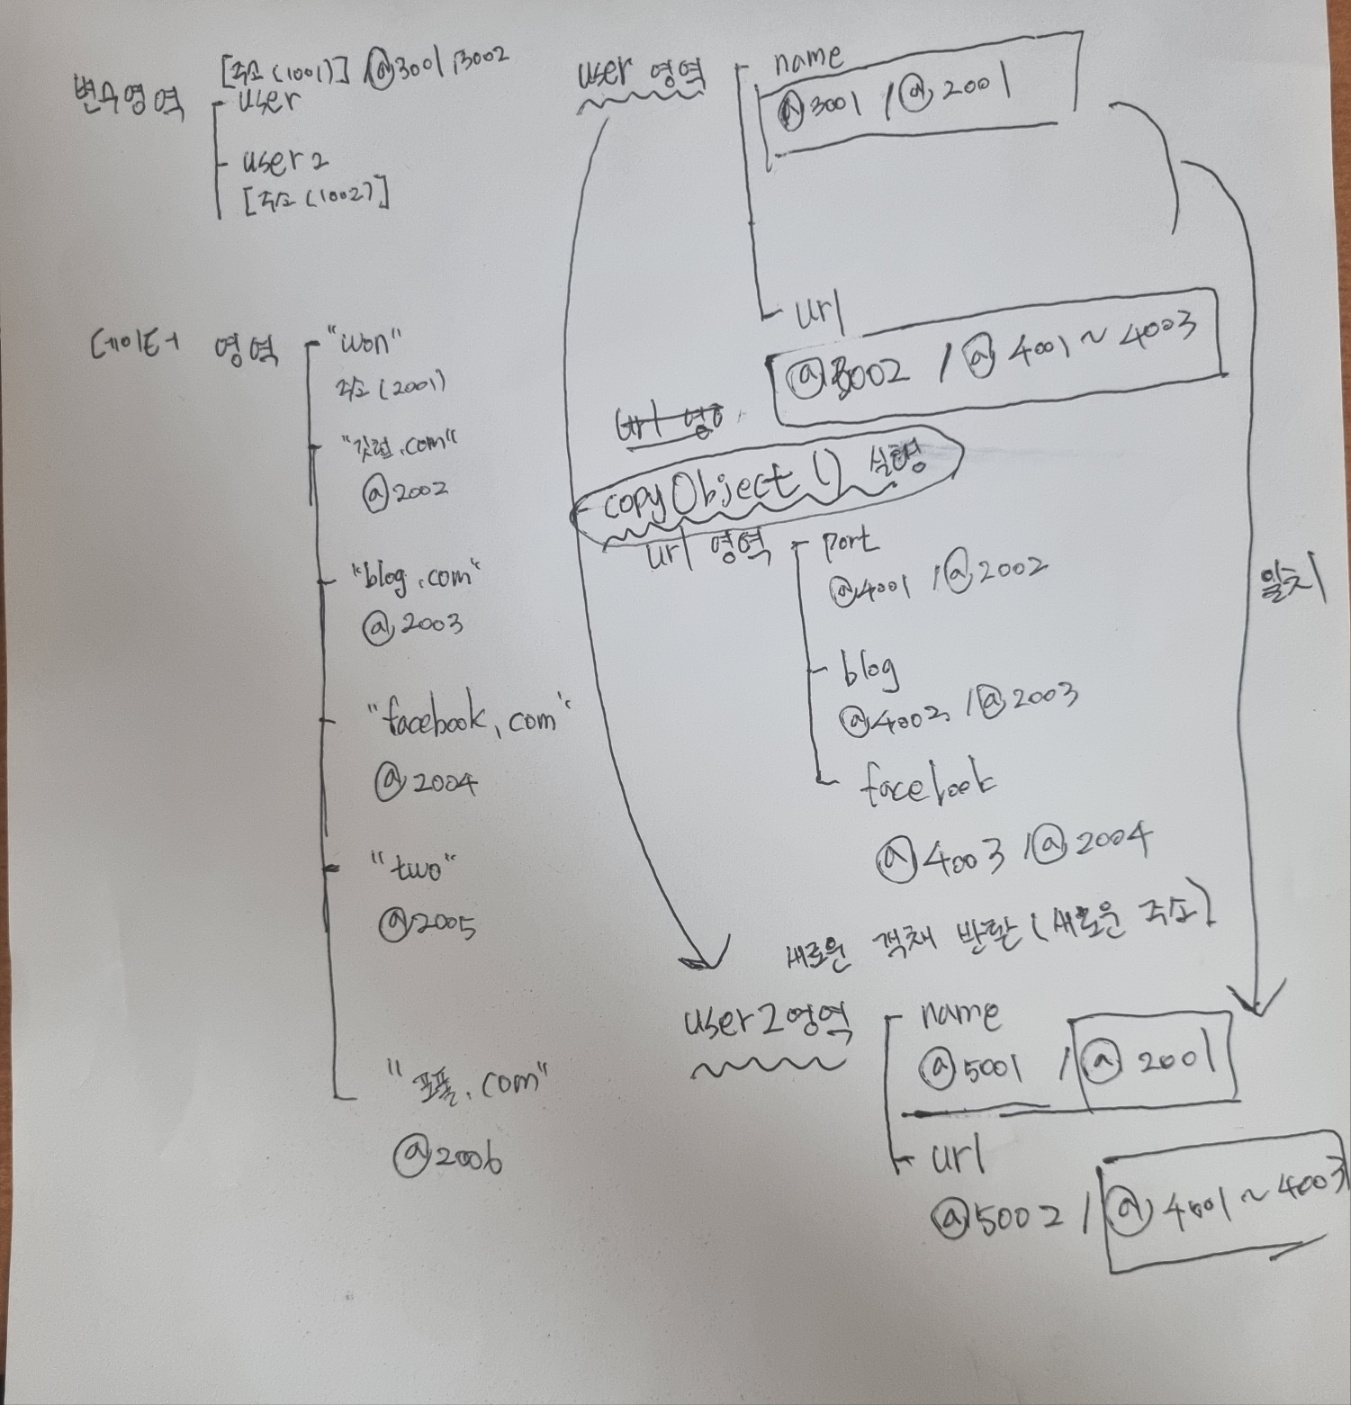 변수영역
[주소(1001)] @3001,3002
user
user2
[주소(1002)]
데이터 영역
"won"
주소(2001)
"깃헙.com"
@2002
"blog.com"
@2003
"facebook.com"
@2004
"two"
@2005
"포폴.com"
@2006
user 영역
name
@3001 / @2001
url
@3002 / @4001~4003
url 영역
copyObject() 실행
url 영역
port
@4001 / @2002
blog
@4002 / @2003
facebook
@4003 / @2004
일치
새로운 객체 반환(새로운 주소)
user2영역
name
@5001 / @2001
url
@5002 / @4001~4003